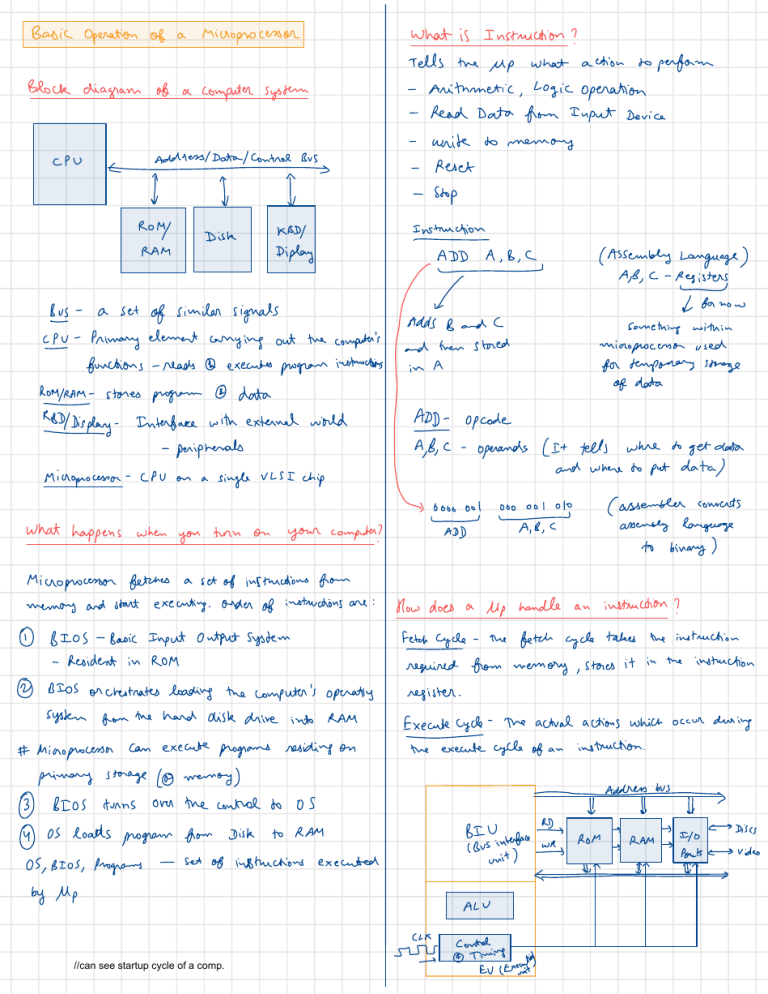 Basic Operation of a Microprocessor
Block diagram of a computer system
CPU
Address/Data/Control Bus
ROM/
RAM
Disk
KBD/
Diplay
Bus - a set of similar signals
CPU - Primary element carrying out the computer's
functions - reads & executes program instructions
ROM/RAM - stores program & data
KBD/Display - Interface with external world
- peripherals
Microprocessor - CPU on a single VLSI chip
What happens when you turn on your computer?
Microprocessor fetches a set of instructions from
memory and start executing. Order of instructions are:
① BIOS - Basic Input Output System
- Resident in ROM
② BIOS orchestrates loading the computer's operating
system from the hard disk drive into RAM
# Microprocessor can execute programs residing on
primary storage (& memory)
③ BIOS turns over the control to OS
④ OS loads program from Disk to RAM
OS, BIOS, Programs — set of instructions executed
by Mp
//can see startup cycle of a comp.
What is Instruction?
Tells the Mp what action to perform
- Arithmetic, Logic operation
- Read Data from Input Device
- write to memory
- Reset
- Stop
Instruction
ADD A, B, C
(Assembly Language)
A, B, C - Registers
for now
something within
microprocessor used
for temporary storage
of data
Adds B and C
and then stored
in A
ADD - opcode
A, B, C - operands (It tells where to get data
and where to put data)
0000 001 000 001 010
ADD A, B, C
(assembler converts
assembly language
to binary)
How does a Mp handle an instruction?
Fetch Cycle - The fetch cycle takes the instruction
required from memory, stores it in the instruction
register.
Execute Cycle - The actual actions which occur during
the execute cycle of an instruction.
Address bus
BIU
(Bus interface
unit)
RD
WR
ROM
RAM
I/O
Ports
Discs
Video
ALU
CLK
Control
& Timing
EU (Execution
unit)